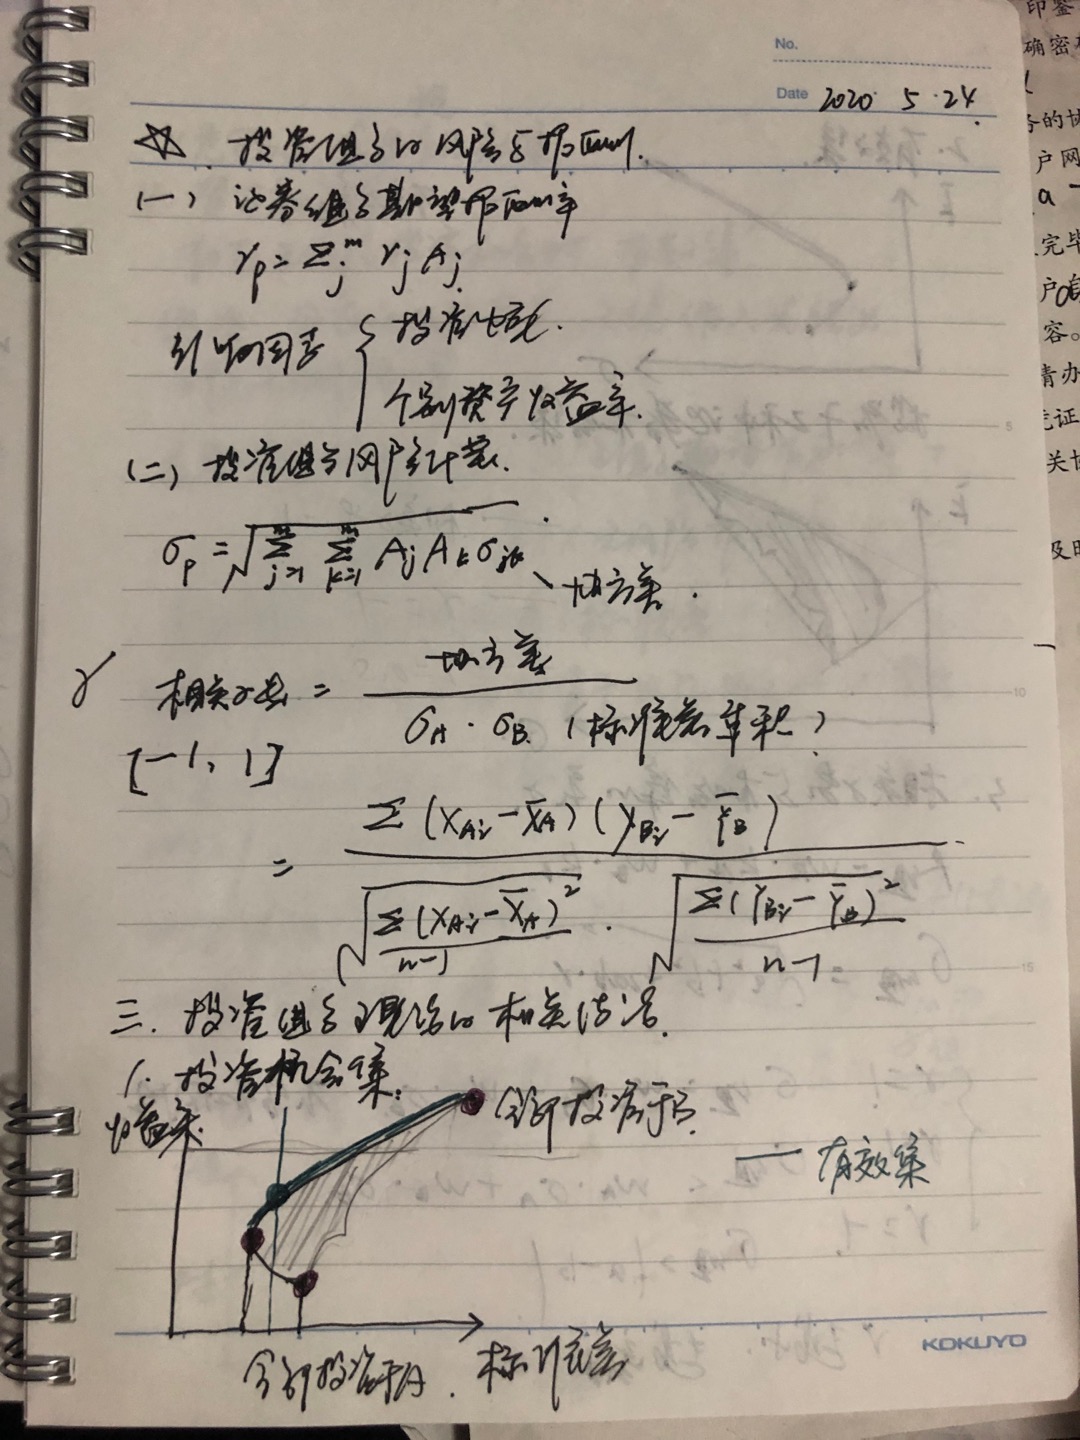 No.
Date 2020 5.24.
☆. 投资组合的风险与报酬.
(一) 证券组合期望报酬率
r_p = Σ_j^m r_j A_j.
影响因素 { 投资比重.
个别资产收益率.
(二) 投资组合风险计算.
σ_p = √(Σ_{j=1}^m Σ_{k=1}^m A_j A_k σ_{jk}) 协方差.
r 相关系数 = 协方差 / (σ_A · σ_B (标准差乘积))
[-1, 1]
= Σ(X_{Ai} - X̄_A)(Y_{Bi} - Ȳ_B) / (√(Σ(X_{Ai} - X̄_A)² / n-1) · √(Σ(Y_{Bi} - Ȳ_B)² / n-1))
三. 投资组合理论的相关结论.
1. 投资机会集:
收益率.
全部投资于B.
— 有效集
全部投资于A.
标准差
KOKUYO
5
10
15
印鉴
确密
务的协
户网
完毕
户
容。
请办
凭证
关协
及时